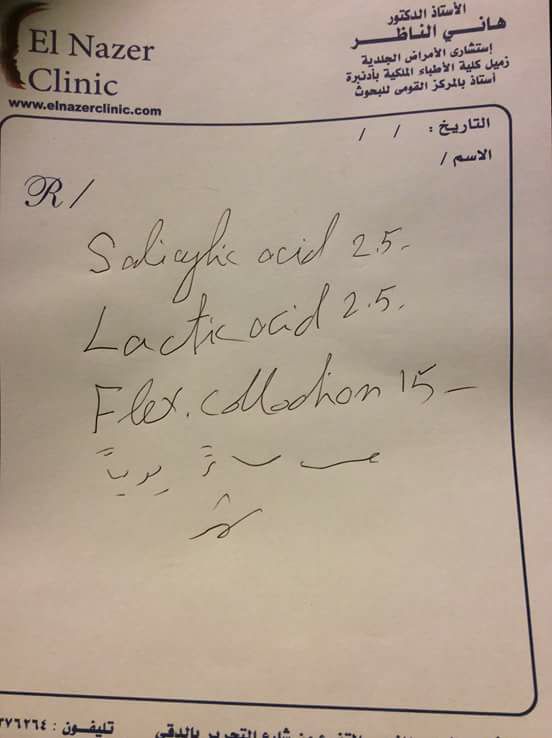 El Nazer
Clinic
www.elnazerclinic.com
الأستاذ الدكتور
هاني الناظر
إستشارى الأمراض الجلدية
زميل كلية الأطباء الملكية بأدنبرة
أستاذ بالمركز القومى للبحوث
التاريخ : / /
الاسم /
R/
Salicylic acid 2.5-
Lactic acid 2.5.
Flex. collodion 15-
يومياً
من شارع التحرير بالدقى
تليفون : ٣٧٦٢٦٤